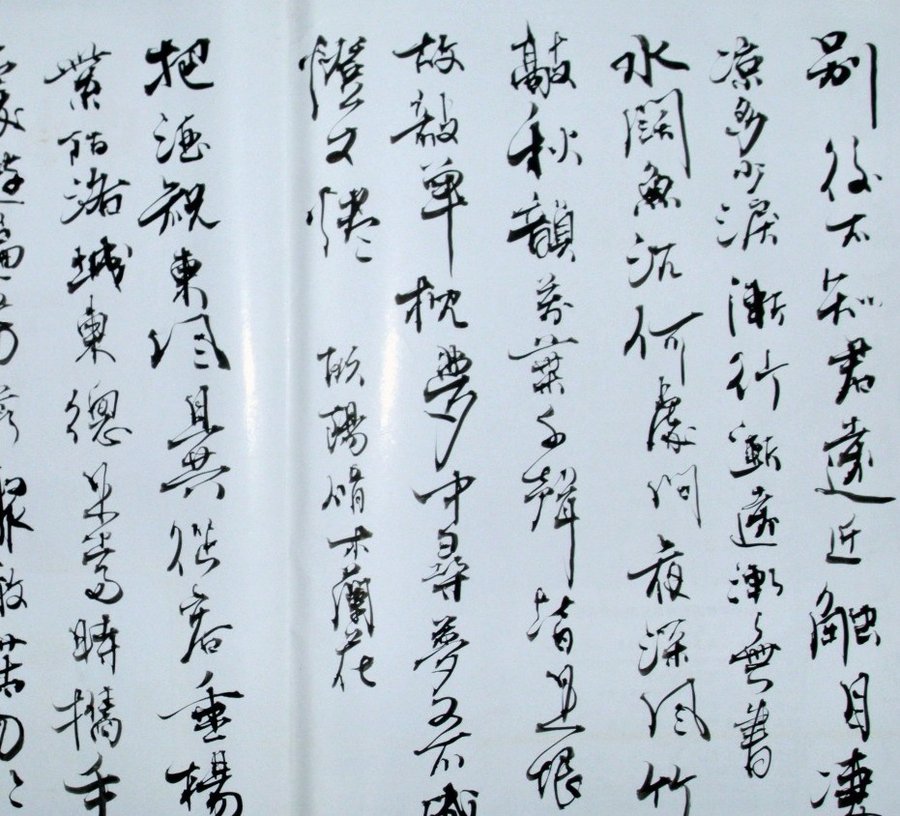 別後不知君遠近觸目淒
涼多少淚漸行漸遠漸無書
水闊魚沉何處問夜深風竹
敲秋韻萬葉千聲皆是恨
故敧單枕夢中尋夢又不成
燈又燼 歐陽脩木蘭花
把酒祝東風且共從容垂楊
紫陌洛城東總是當時攜手
處遊遍芳叢聚散苦匆々